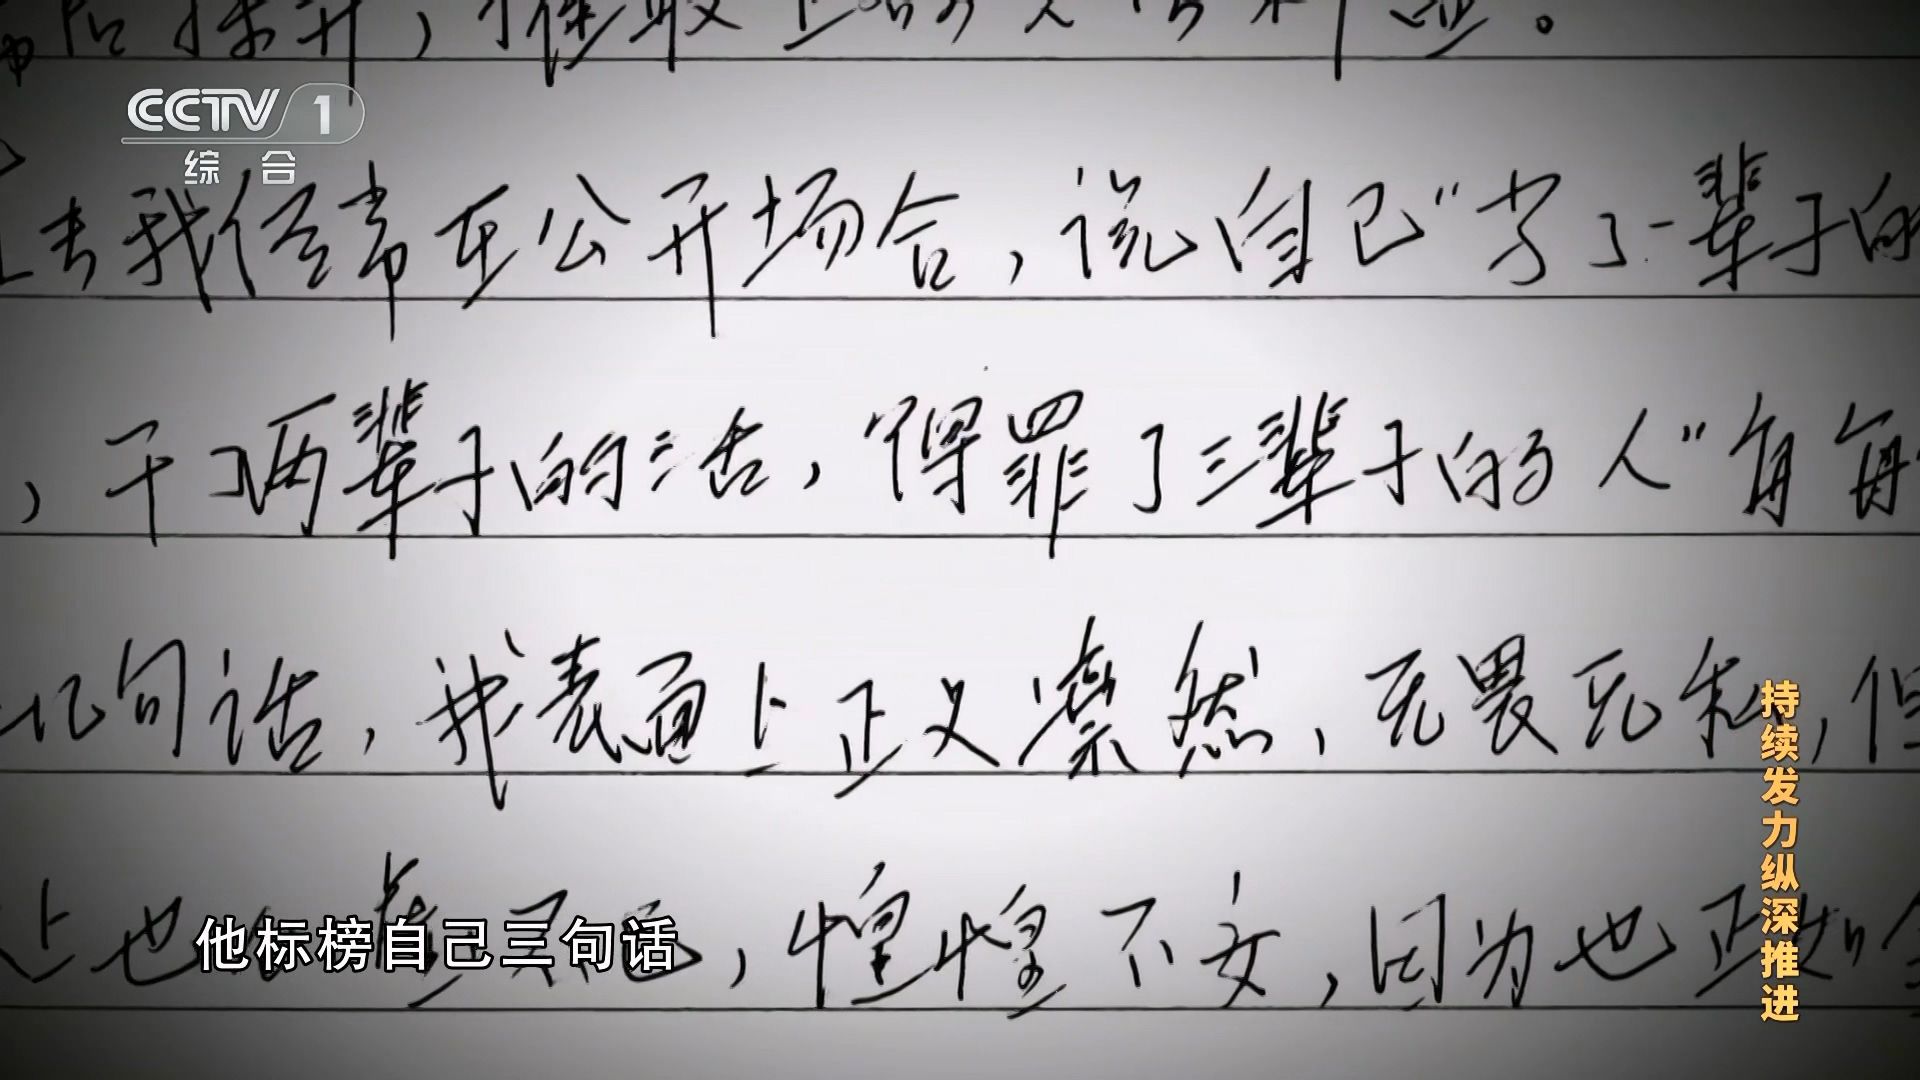 CCTV 1
综合
去我经常在公开场合，说自己“当了一辈子的
，干了两辈子的活，得罪了三辈子的人”每每
句话，我表面上正义凛然，无畏无私，但
上也心，惶惶不安，因为也正如
他标榜自己三句话
持续发力纵深推进